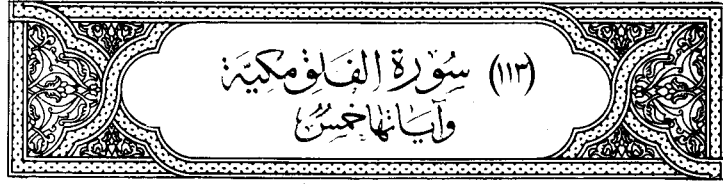 (١١٣) سُورَةُ الفَلَقِ مَكِيَّة
وَآيَاتُهَا خَمْسٌ